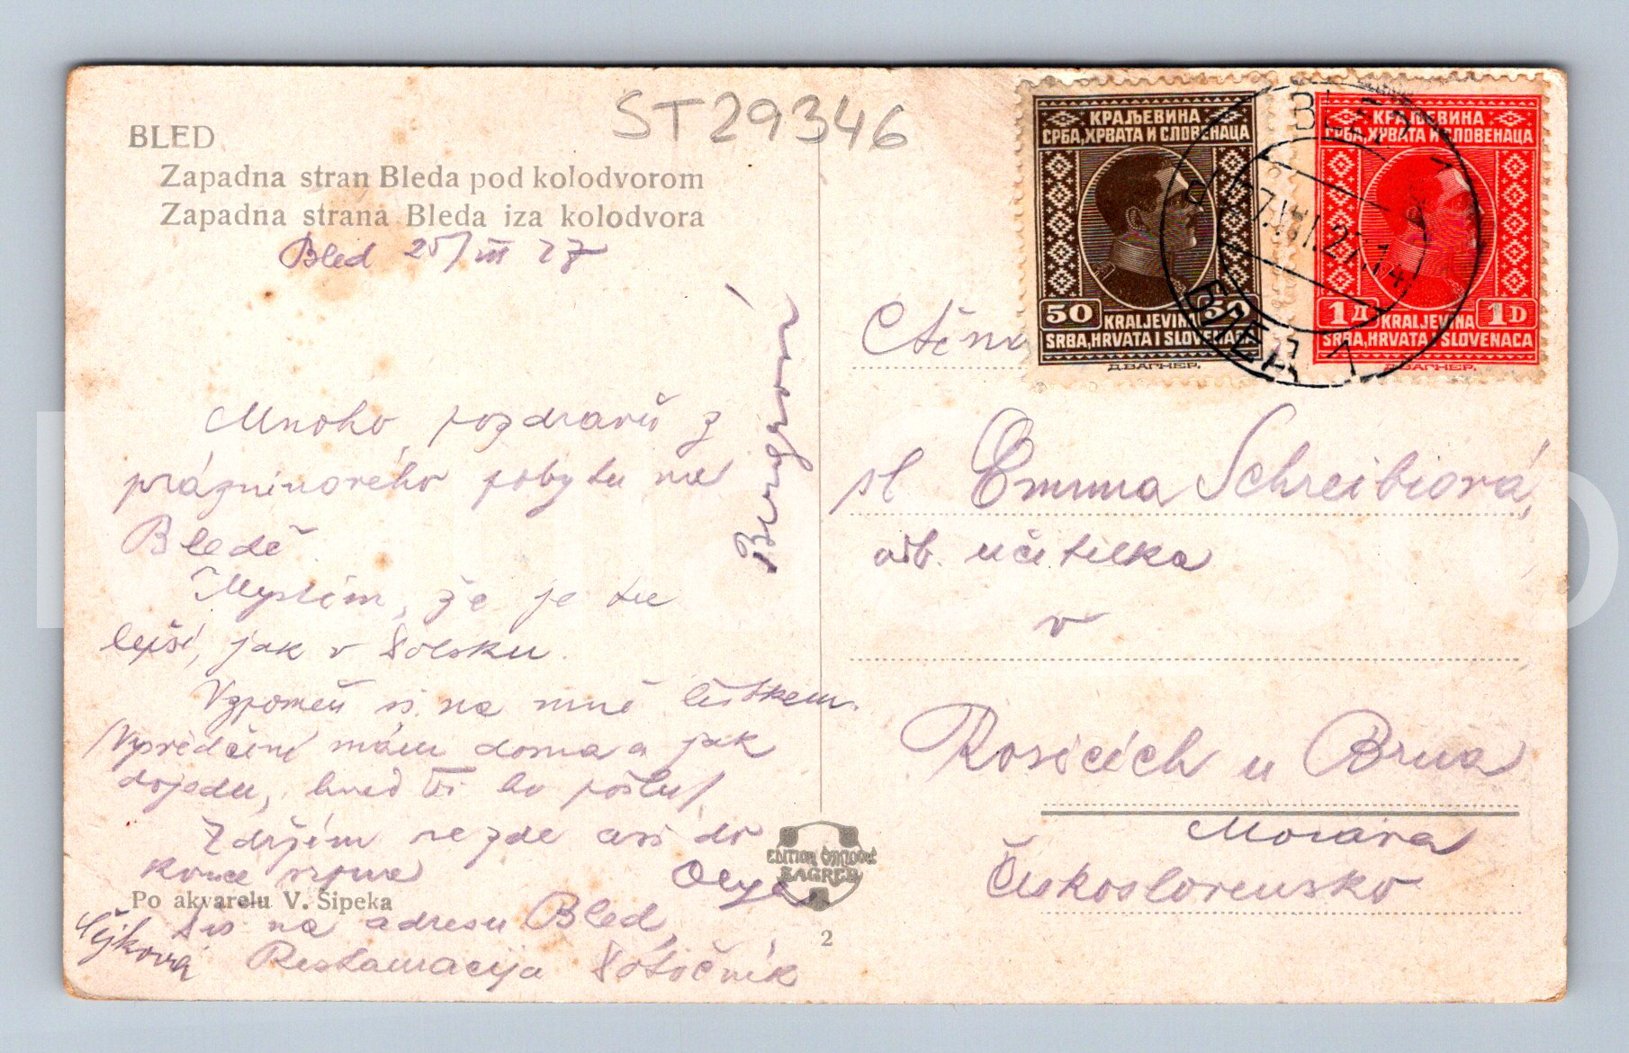 ST29346
BLED
Zapadna stran Bleda pod kolodvorom
Zapadna strana Bleda iza kolodvora
Bled 25/VII 27
Mnoho pozdravů z
prázninového pobytu na
Bledě
Myslím, že je tu
lepší, jak v Polsku.
Vzpomeň si na mně lístkem.
/Vysvědčení mám doma a jak
dojedu, hned Ti ho pošlu/
Zdržím se zde asi do
konce srpna
Olga
Piš na adresu Bled,
Restauracija Potočnik
Po akvarelu V. Šipeka
EDITION ČAKLOVIĆ
ZAGREB
2
КРАЉЕВИНА
СРБА, ХРВАТА И СЛОВЕНАЦА
50 50
KRALJEVINA
SRBA, HRVATA I SLOVENACA
Д.ВАГНЕР.
КРАЉЕВИНА
СРБА, ХРВАТА И СЛОВЕНАЦА
1Д 1D
KRALJEVINA
SRBA, HRVATA I SLOVENACA
Д.ВАГНЕР.
BLED 1
БЛЕД 1
Ctěná
sl Emma Schreibiová,
odb. učitelka
v
Rosicích u Brna
Morava
Československo